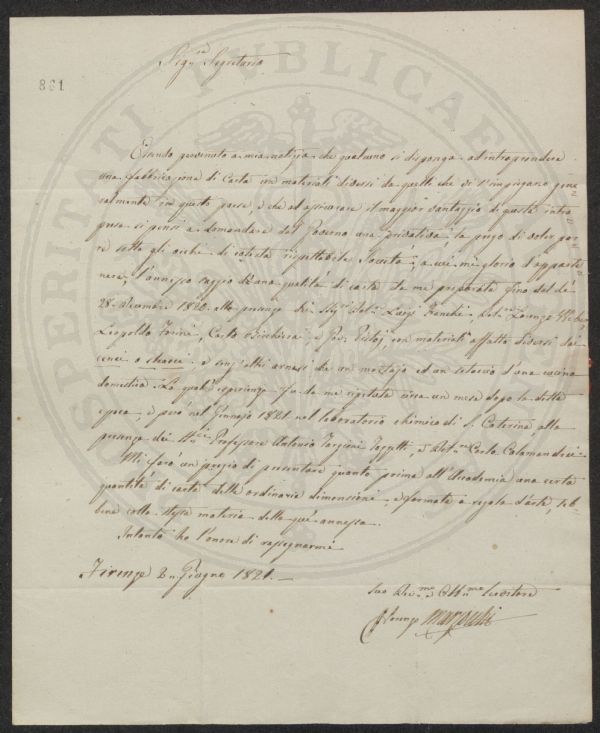 PROSPERITATI PUBLICAE AUGENDAE
861
Sign.re Segretario
Essendo pervenuto a mia notizia che qualcuno si dispone ad intraprendere
una fabbricazione di Carta con materiali diversi da quelli che vi s'impiegano gene-
ralmente in questo paese, e che ad assicurare il maggior vantaggio di questa intra-
presa si pensi a domandare dal Governo una privativa, la prego di voler por-
re sotto gli occhi di cotesta rispettabile Società, a cui mi glorio d'apparte-
nere, l'annesso saggio d'una qualità di carta da me preparata fino dal dì
28. Decembre 1820. alla presenza dei Sig.ri Dott. Luigi Lorenzo
Leopoldo Carlo e con materiali affatto diversi dai
cenci o stracci e senz'altri arnesi che un mortajo ed un setaccio d'una cucina
domestica. La qual esperienza fu da me ripetuta circa un mese dopo la detta
epoca, e però nel Gennajo 1821. nel laboratorio chimico di S. Caterina alla
presenza dei Sig.ri Professore Antonio Targioni Tozzetti, e Dott.re Carlo Calamandrei.
Mi farò un pregio di presentare quanto prima all'Accademia una certa
quantità di carta delle ordinarie dimensioni e formata a regola d'arte, seb-
bene colla stessa materia della qui annessa.
Intanto ho l'onore di rassegnarmi
Firenze 2. Giugno 1821.
Suo Dev.mo Obb.mo Servitore